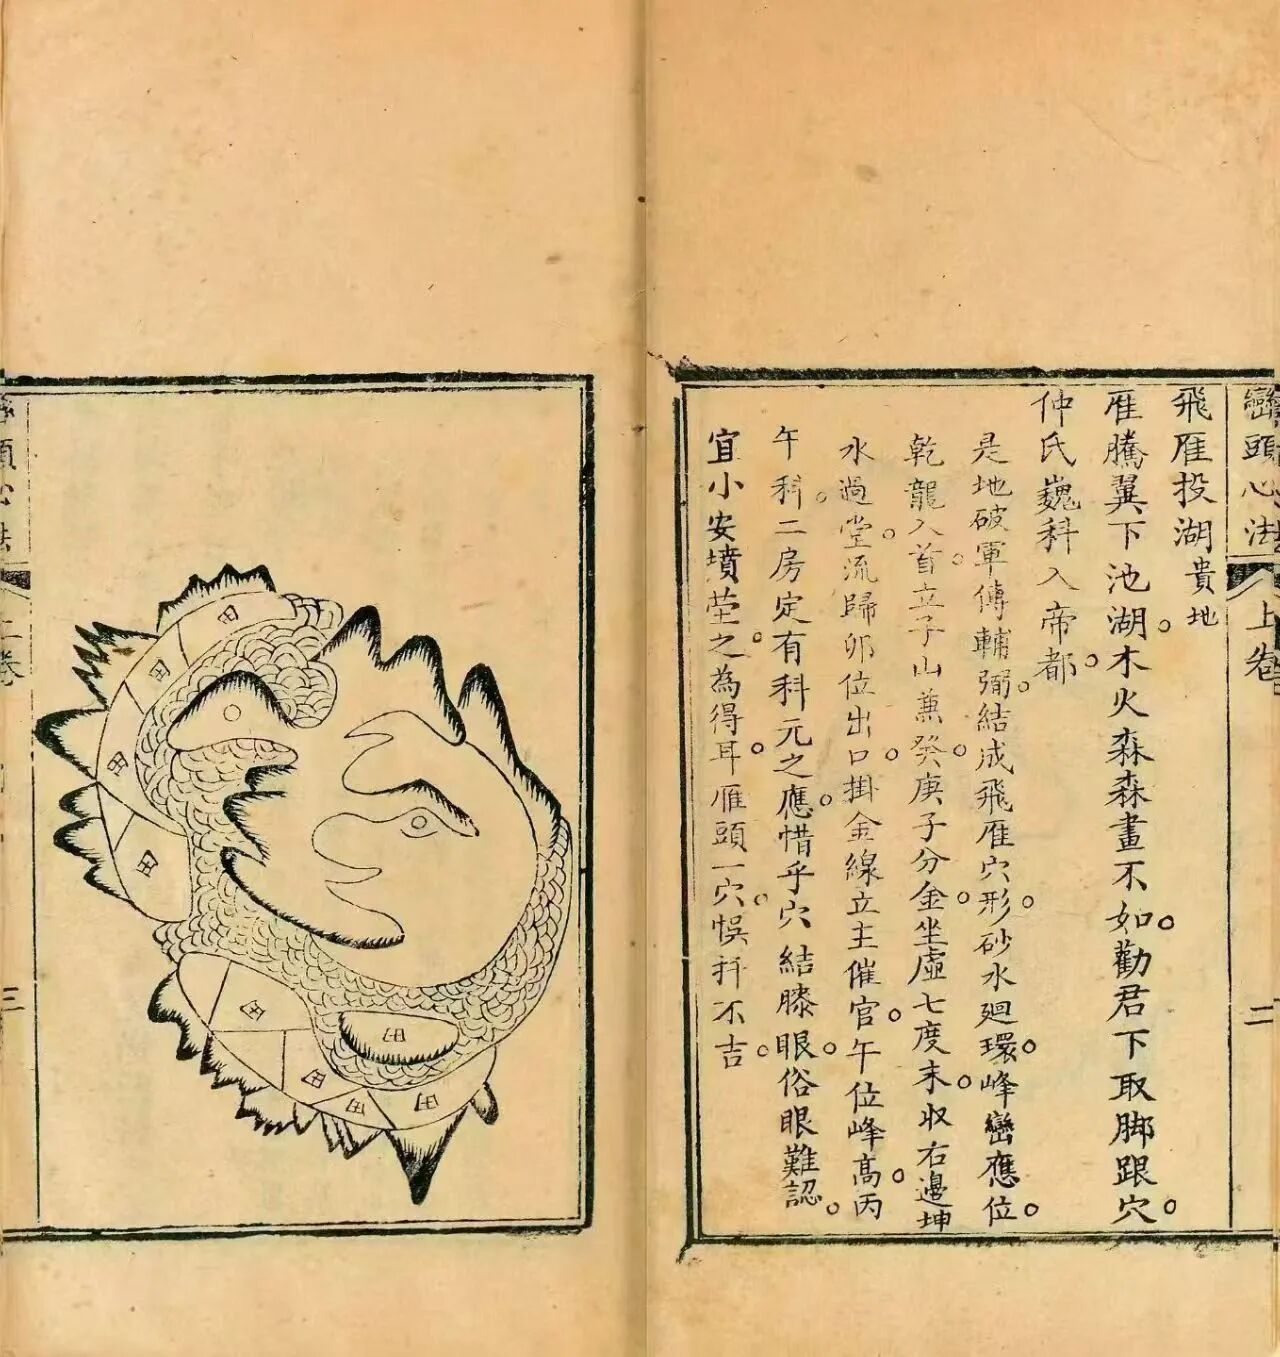 巒頭心法 上卷 二
飛雁投湖貴地
雁騰翼下池湖。木火森森畫不如。勸君下取脚跟穴。
仲氏巍科入帝都。
是地破軍傳輔弼。結成飛雁穴形。砂水廻環。峰巒應位。
乾龍入首。立子山兼癸。庚子分金。坐虛七度末。收右邊坤
水過堂。流歸卯位出口。掛金線立主催官。午位峰高。丙
午科。二房定有科元之應。惜乎穴結膝眼。俗眼難認。
宜小安墳塋之。為得耳。雁頭一穴。悞扦不吉。
田
田
田
田
田
田
田
田
田
二卷
三